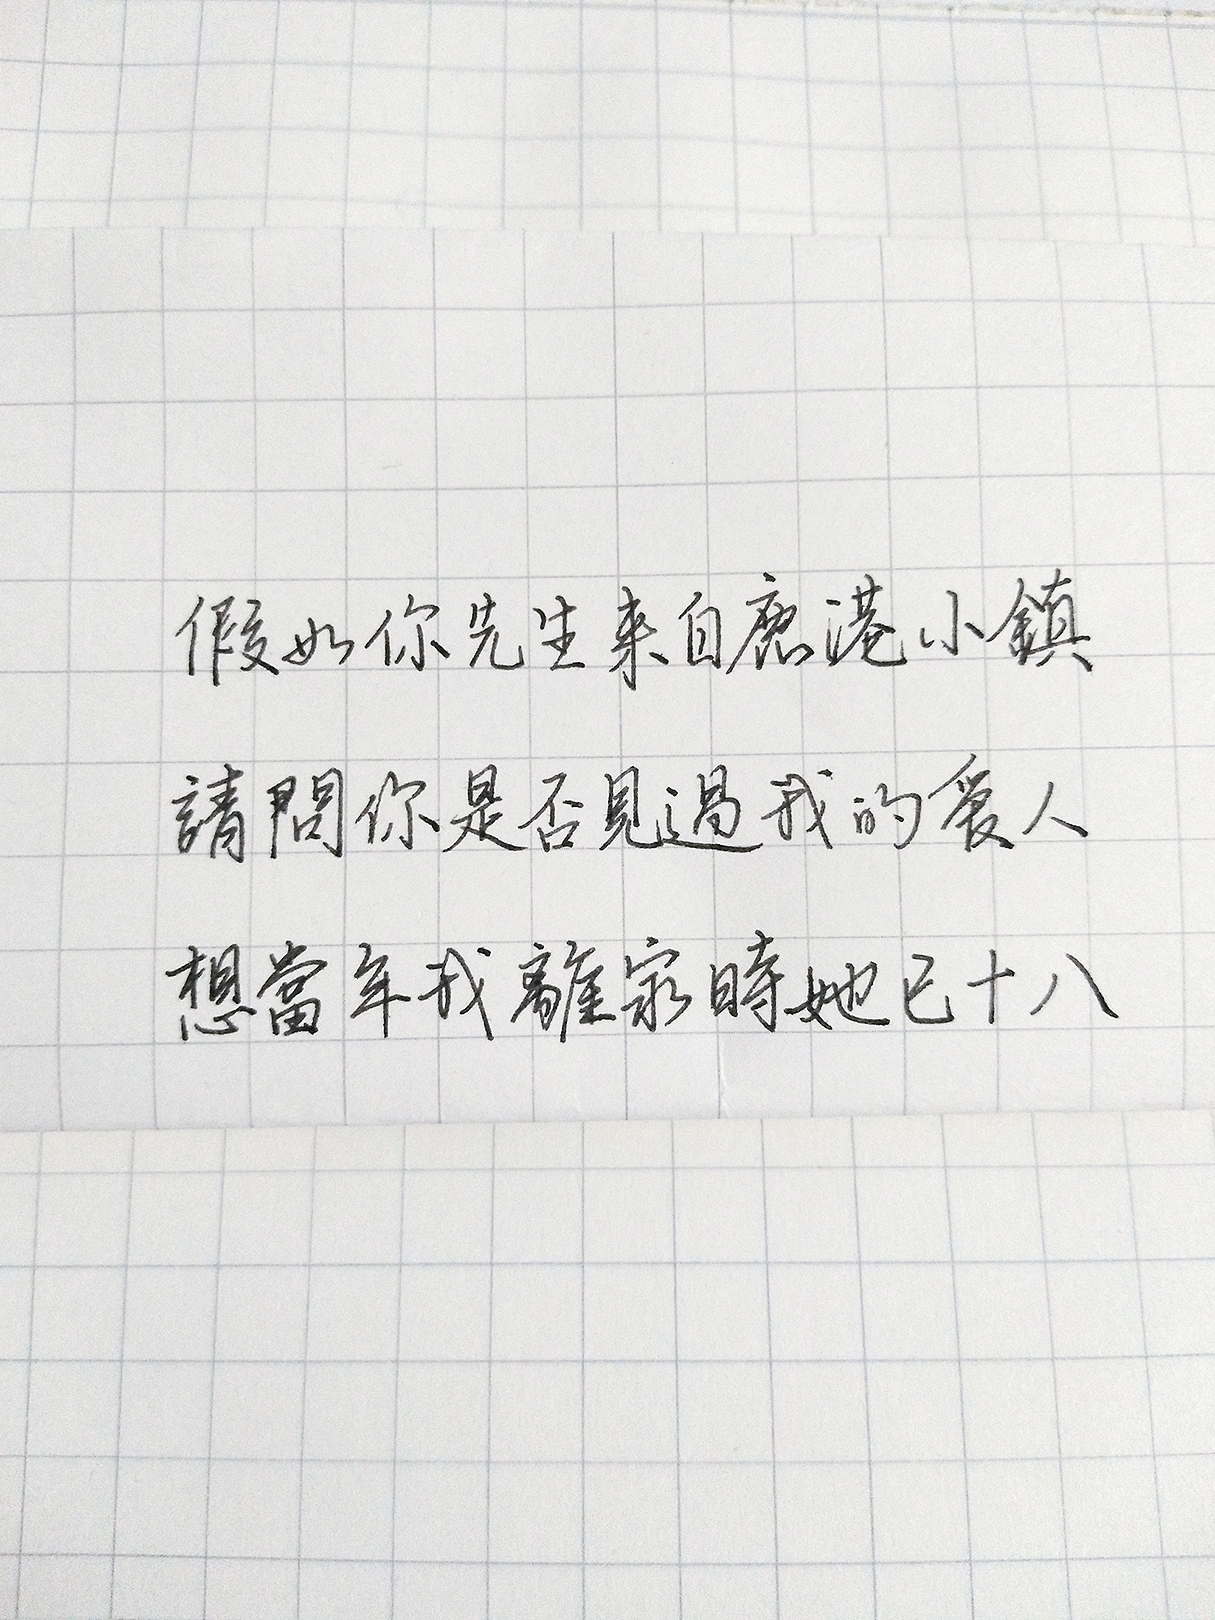 假如你先生来自鹿港小鎮
請問你是否見過我的爱人
想當年我離家時她已十八